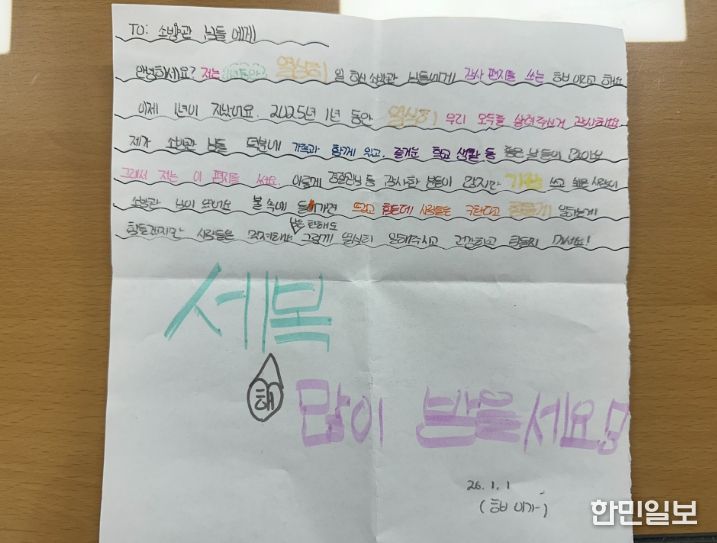 TO: 소방관 님들에게
안녕하세요? 저는 열심히 일 하신 소방관 님들에게 감사 편지를 쓰는 라고 해요
이제 1년이 지났어요. 2025년 1년 동안 열심히 우리 모두를 살려주셔서 감사해요.
제가 소방관 님들 덕분에 가족과 함께 있고, 즐거운 학교 생활 등 좋은 날들이 많아요
그래서 저는 이 편지를 써요. 이렇게 경찰관님 등 감사한 분들이 많지만 가장 쓰고 싶은 사람이
소방관 님이 뜨거운 불 속에 들어가면 뜨겁고 힘든데 사람들을 구한다고 힘들게 일하는게
힘들겠지만 사람들을 걱정해서 그렇게 열심히 일해주시고 건강하고 다치지 마세요!
세복
해
많이 받으세요
26.1.1
한민일보